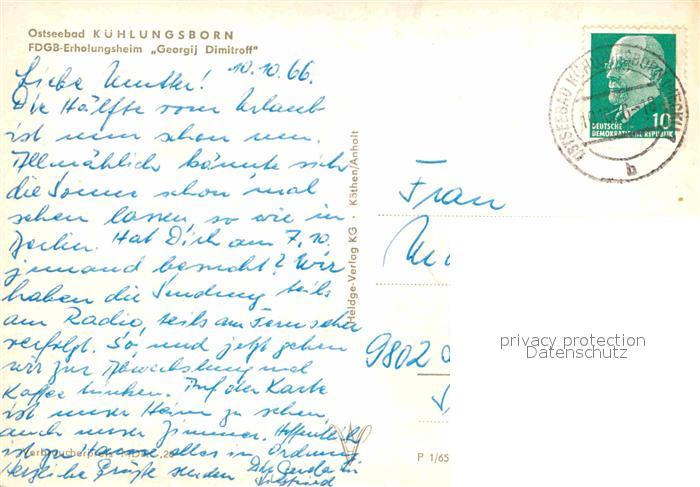 Ostseebad KÜHLUNGSBORN
FDGB-Erholungsheim „Georgij Dimitroff"
Liebe Mutter! 10.10.66.
Die Hälfte vom Urlaub
ist nun schon um.
Allmählich könnte sich
die Sonne schon mal
sehen lassen, so wie in
Berlin. Hat Dich am 7.10.
jemand besucht? Wir
haben die Sendung teils
am Radio, teils am Fernseher
verfolgt. So, und jetzt gehen
wir zur Abwechslung mal
Kaffee trinken. Auf der Karte
ist unser Heim zu sehen,
auch unser Zimmer. Hoffentlich
ist zu Hause alles in Ordnung.
Herzliche Grüße senden Dir
Siegfried
Heldge-Verlag KG · Köthen/Anhalt
P 1/65
DEUTSCHE
DEMOKRATISCHE REPUBLIK
10
OSTSEEBAD KÜHLUNGSBORN
b
Frau
9802
privacy protection
Datenschutz